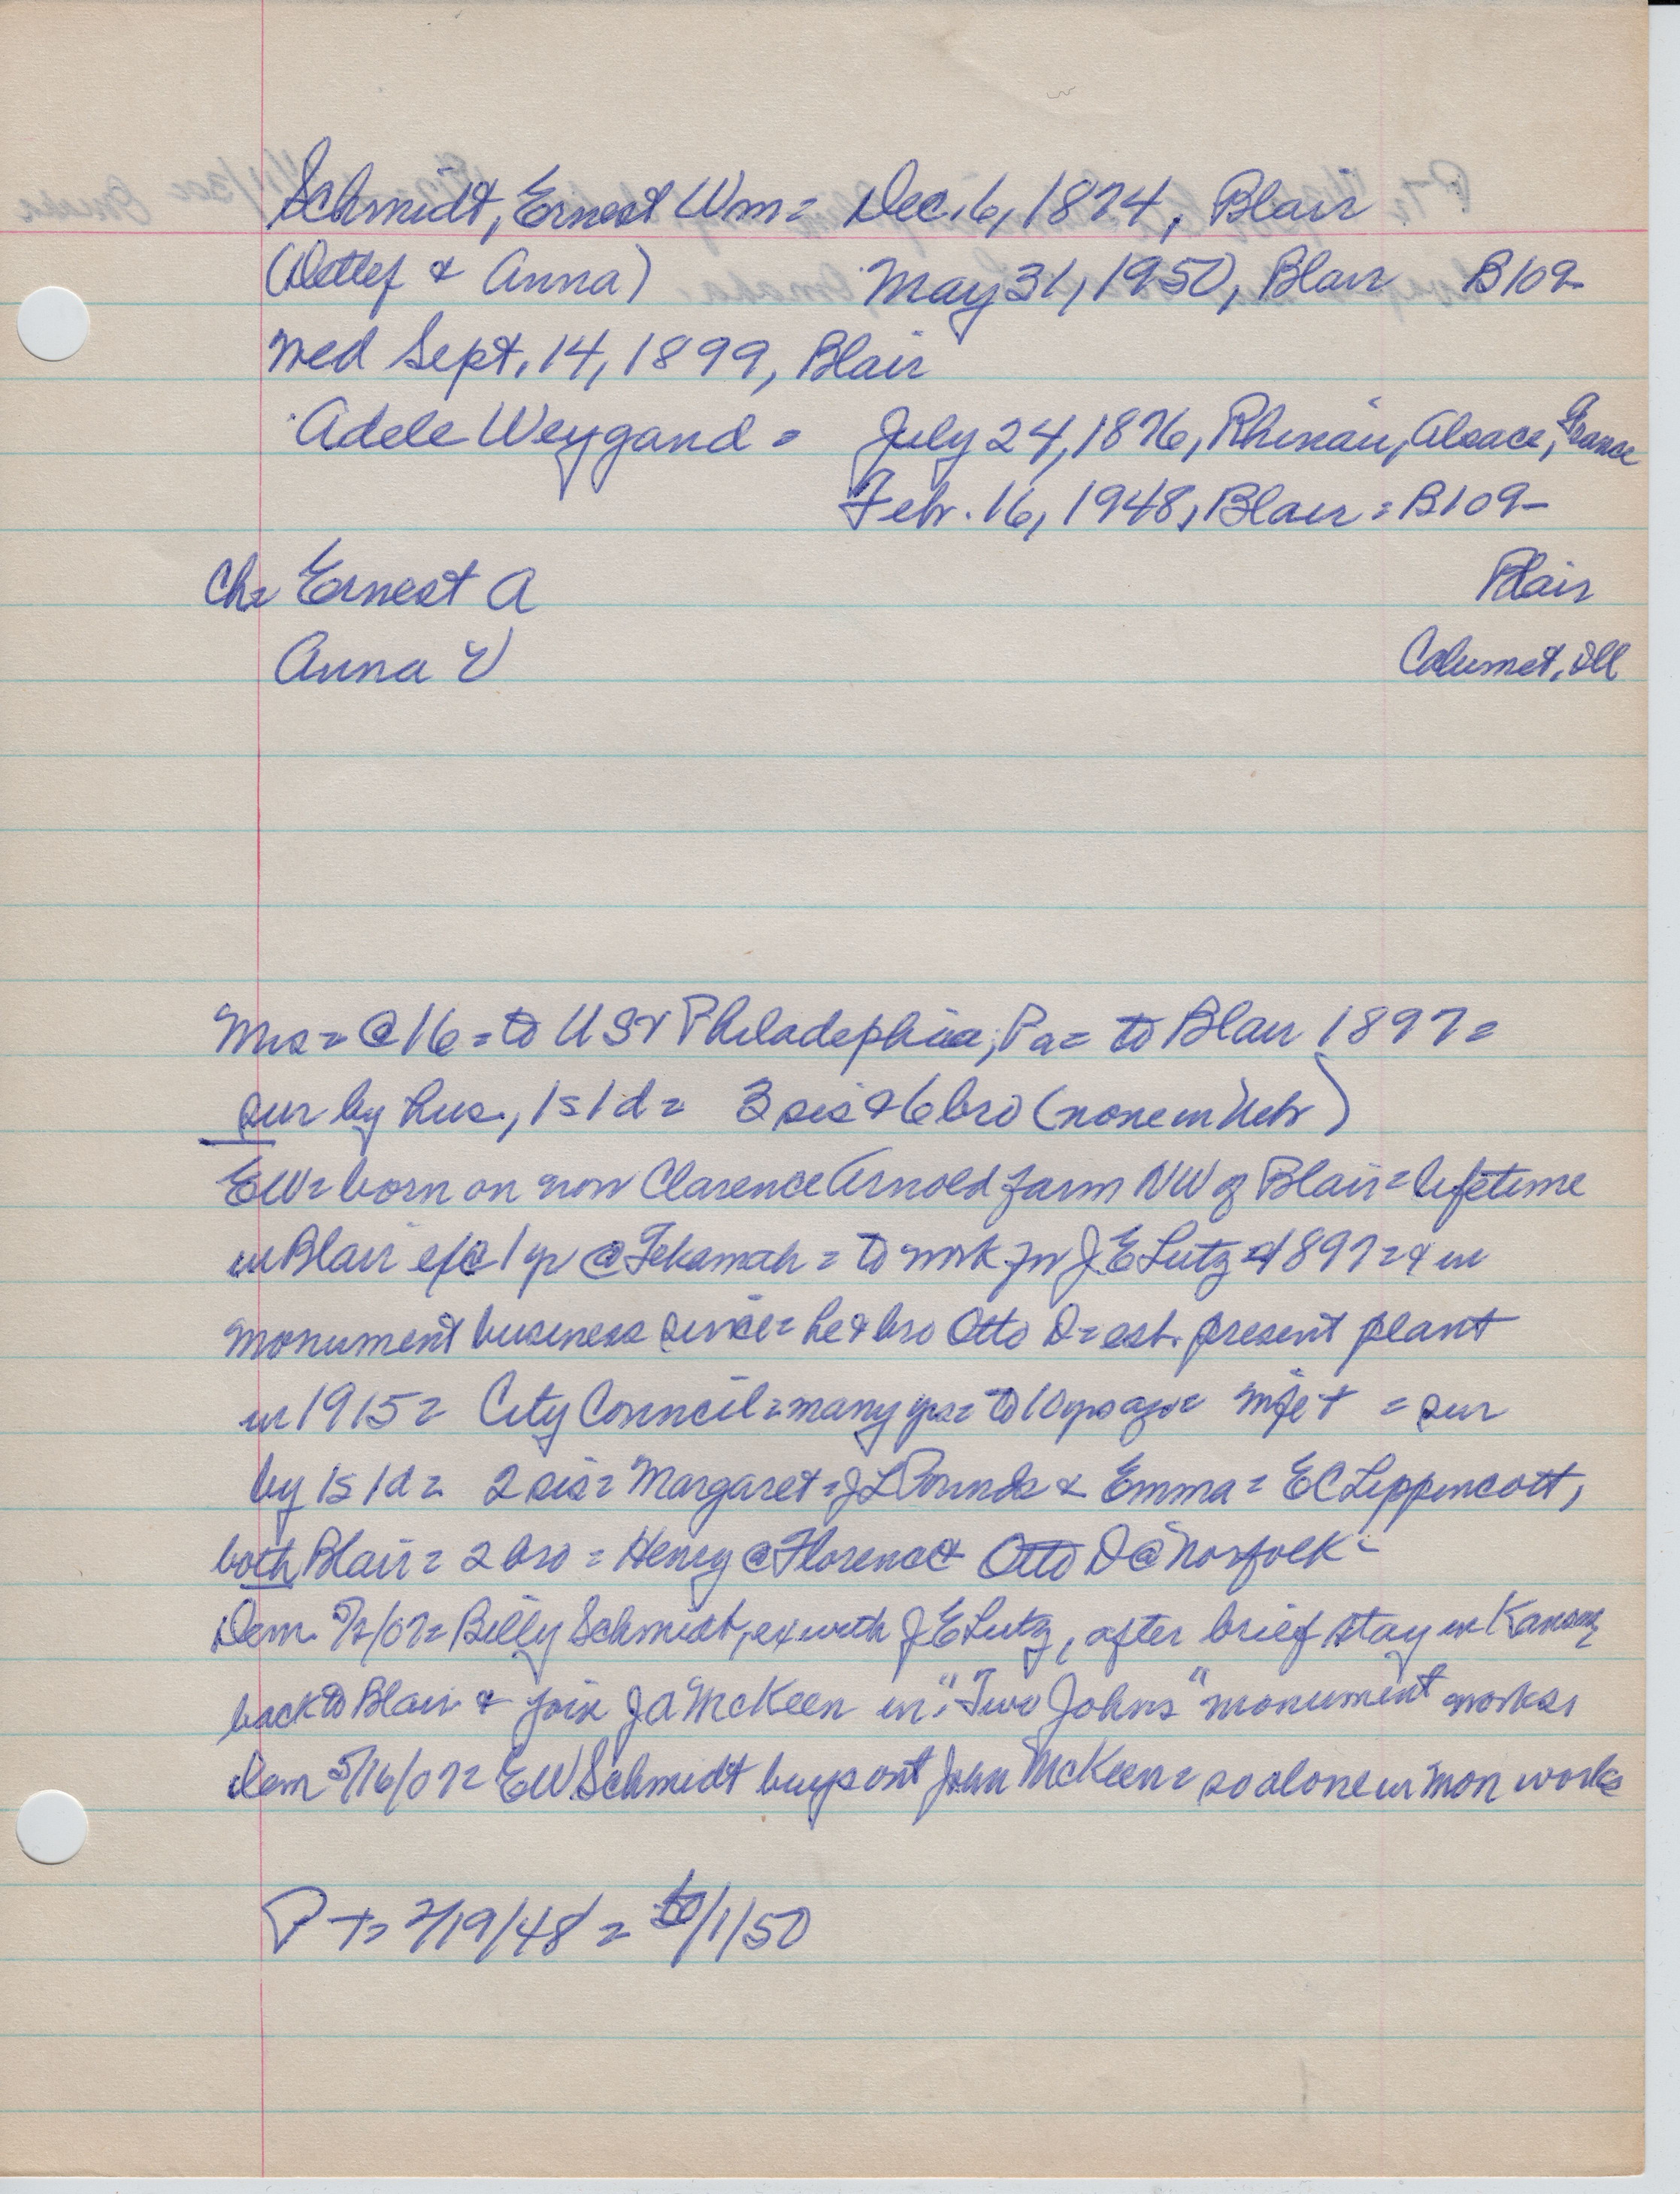 Schmidt, Ernest Wm = Dec. 6, 1874, Blair
(Detlef & Anna) May 31, 1950, Blair B109-
Med Sept. 14, 1899, Blair
Adele Weygand = July 24, 1876, Rhinau, Alsace, France
Feb. 16, 1948, Blair = B109-
Ch= Ernest A Blair
Anna V Calumet, Ill
Mrs = @ 16 = to US & Philadephia, Pa = to Blair 1897 =
sur by hus., 1s 1d = 3 sis & 6 bro (none in Nebr)
EW = born on now Clarence Arnold farm NW of Blair = lifetime
in Blair 1 yr @ Tekamah = to work for J E Lutz 1897 = & in
monument business since = he & bro Otto D = est. present plant
in 1915 = City Council = many yrs = to 10 yrs ago = = sur
by 1s 1d = 2 sis = Margaret = J L Pounds & Emma = E C Lippincott,
both Blair = 2 bro = Henry @ Florence & Otto D @ Norfolk -
Dem. 5/2/07 = Billy Schmidt, ex with J E Lutz, after brief stay in Kansas,
back to Blair & join J A McKeen in "Two Johns" monument works,
Dem 5/16/07 = EW Schmidt buys out John McKeen = so alone in mon works
P T = 2/19/48 = 6/1/50